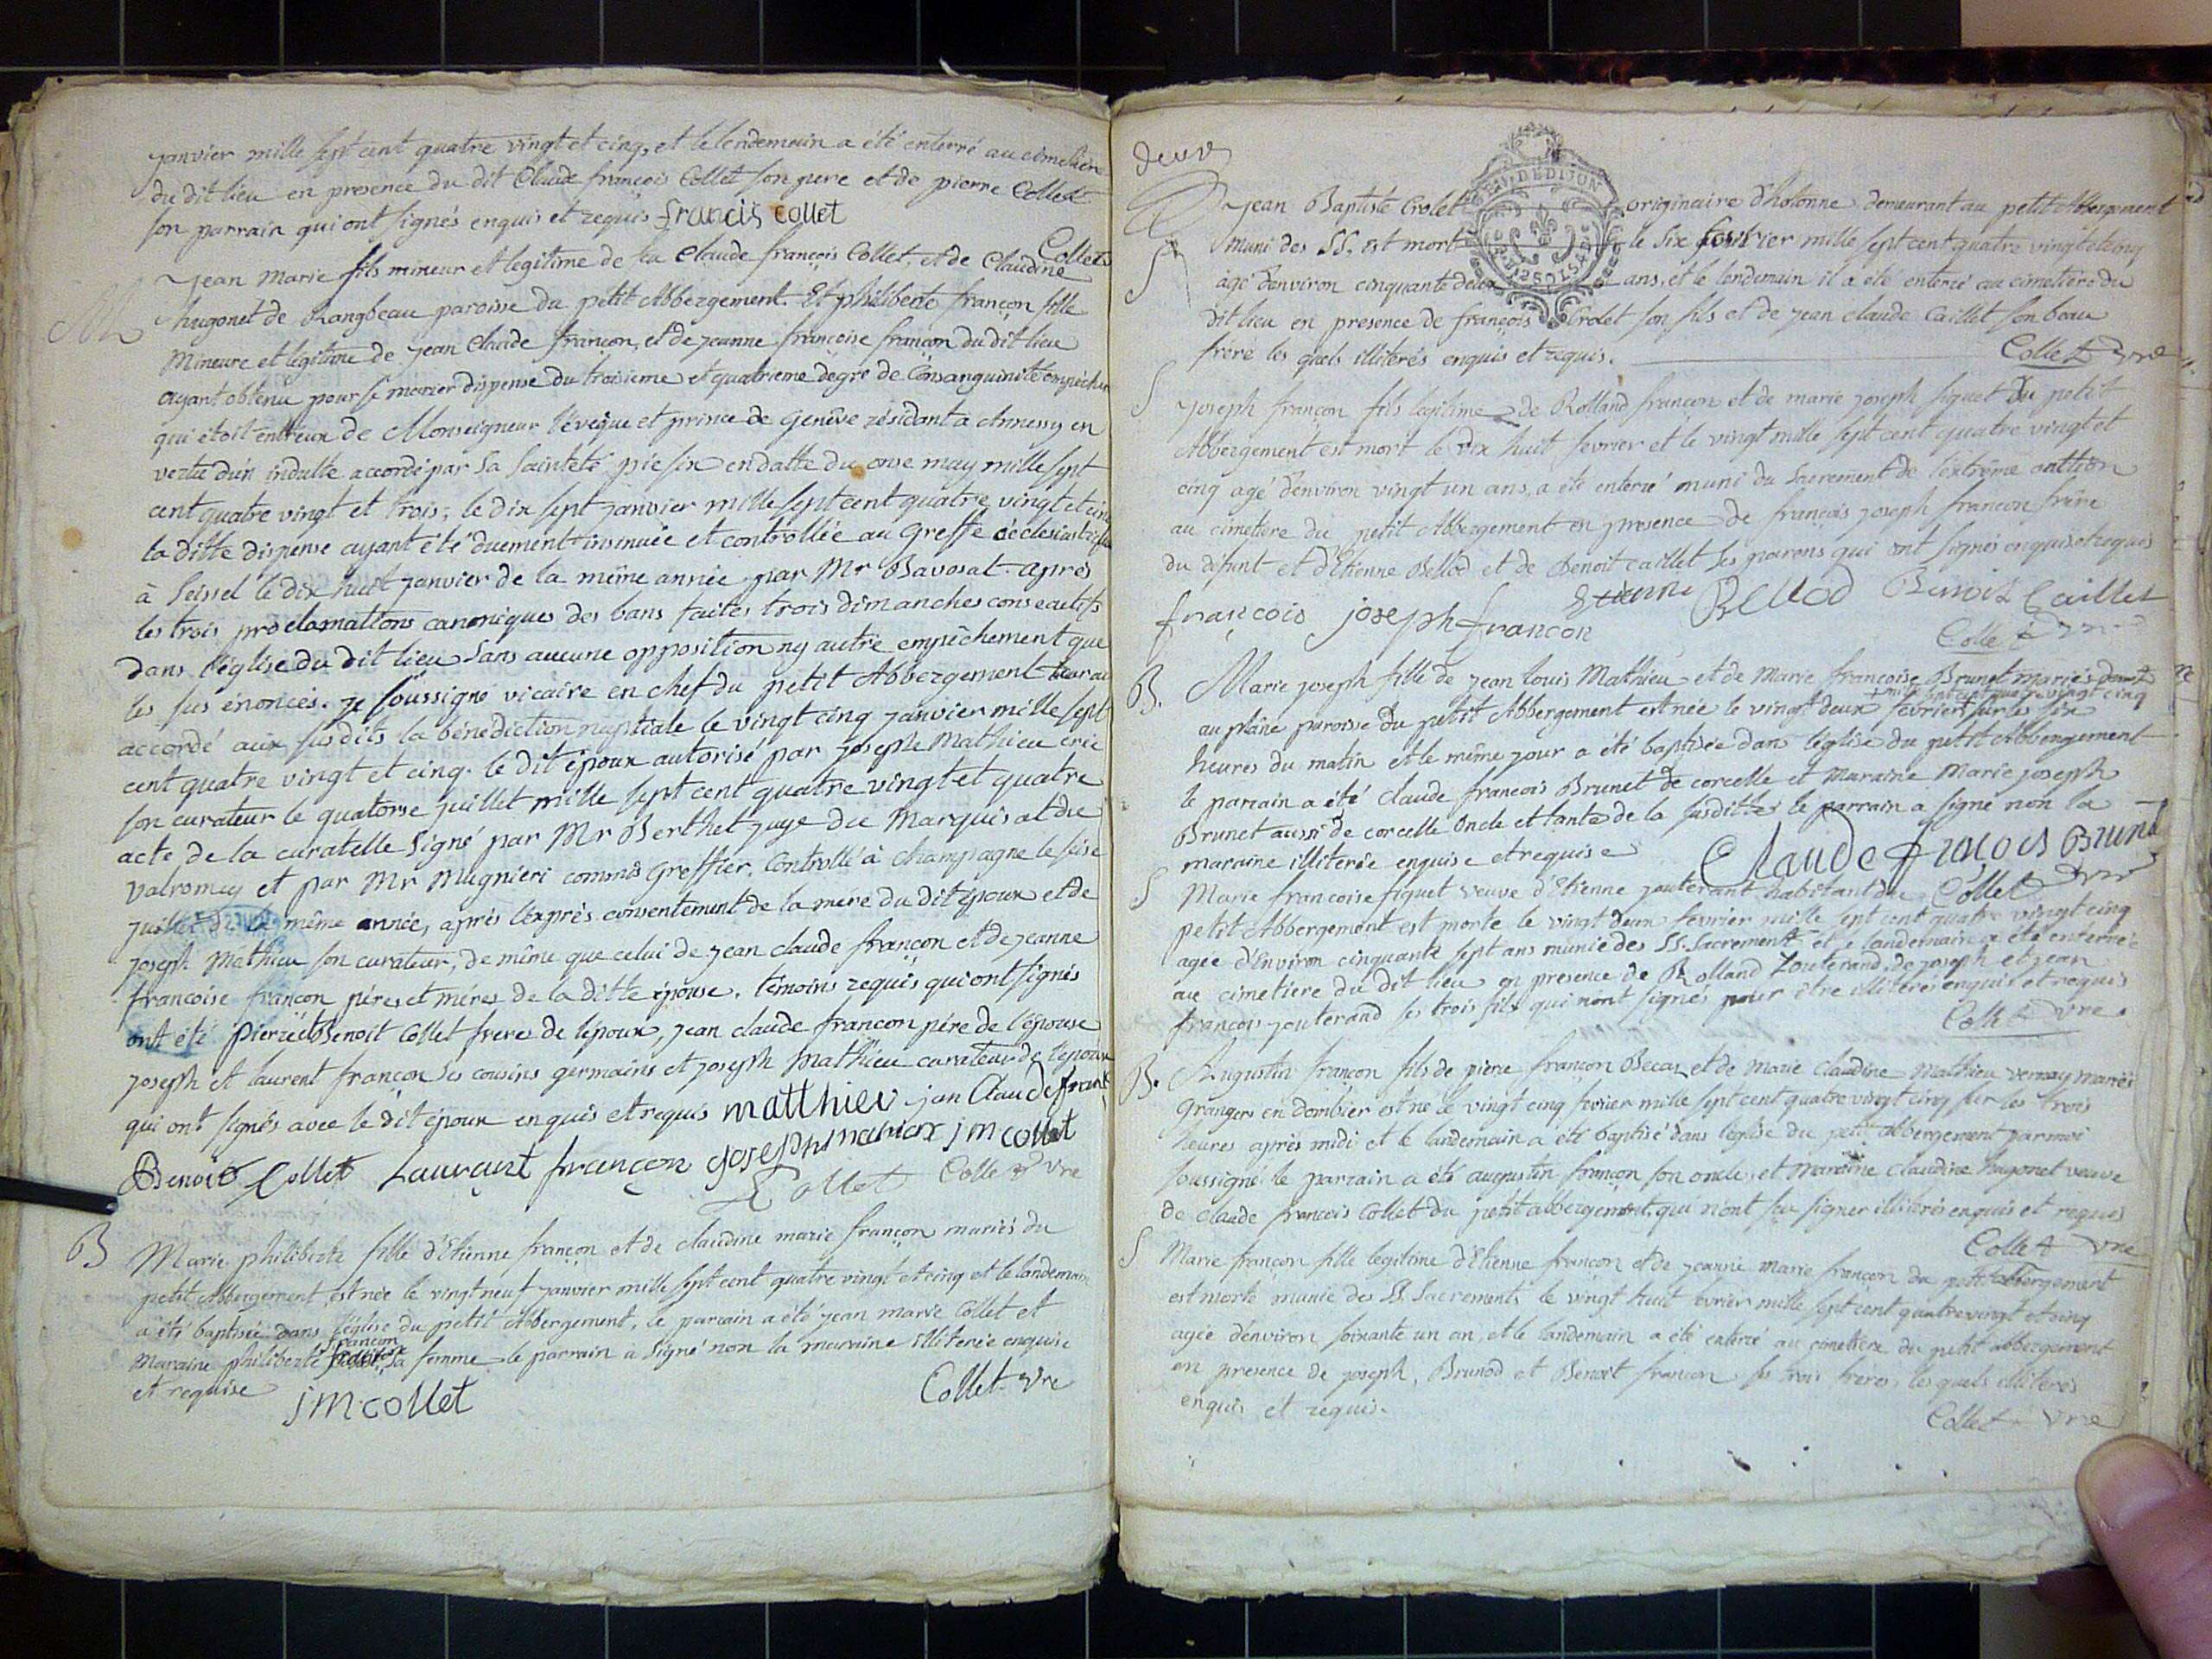 janvier mille sept cent quatre vingt et cinq, et le lendemain a été enterré au cimetiere
du dit lieu en presence du dit Claude françois Collet son pere et de pierre Collet
son parrain qui ont signés enquis et requis francis collet
Collet
M
Jean Marie fils mineur et legitime de feu Claude françois Collet, et de Claudine
hugonet de Rangbeau paroisse du petit Abbergement. Et philiberte françon fille
Mineure et légitime de jean Claude françon, et de jeanne françoise françon du dit lieu
ayant obtenu pour se marier dispense du troisieme et quatrieme degré de Consanguinité
qui étoit entreux de Monseigneur l'évêque et prince de Genêve résidant a Annessy en
vertu d'un indulte accordé par Sa Sainteté pie six en datte du onse may mille sept
cent quatre vingt et trois; le dix sept janvier mille sept cent quatre vingt et cinq
la ditte dispense ayant été duement insinuée et controllée au Greffe ecclesiastique
à Seissel le dix huit janvier de la même année par Mr Bavosat. après
les trois proclamations canoniques des bans faites trois dimanches consecutifs
dans l'église du dit lieu Sans aucune opposition ny autre empêchement que
les sus énoncés. je soussigné vicaire en chef du petit Abbergement
accordé aux susdits la bénédiction nuptiale le vingt cinq janvier mille sept
cent quatre vingt et cinq. le dit époux autorisé par joseph Mathieu créé
son curateur le quatorse juillet mille sept cent quatre vingt et quatre
acte de la curatelle Signé par Mr Berthet juge du Marquisat du
valromey et par Mr Mugnieri commis Greffier. Controllé à Champagne le seise
juillet de la même année, après l'exprès consentement de la mère du dit époux et de
joseph Mathieu son curateur, de même que celui de jean claude françon et de jeanne
françoise françon péres et méres de la ditte épouse. témoins requis qui ont signés
ont été pierre et Benoit Collet freres de l'époux, jean claude françon pére de l'épouse
joseph et laurent françon ses cousins germains et joseph Mathieu curateur de l'époux
qui ont signés avec le dit époux enquis et requis matthieu jan Claude
Benoit Collet Lauraint françon j m collet
Collet Collet vre
B
Marie philiberte fille d'Etienne françon et de claudine marie françon mariés du
petit Abbergement est née le vingt neuf janvier mille sept cent quatre vingt et cinq et le landemain
a été baptisée dans l'église du petit Abbergement, le parrain a été jean marie Collet et
françon
Maraine philiberte sa femme le parrain a signé non la maraine illiterée enquise
et requise
j m collet Collet vre
deux
S
Jean Baptiste Crolet originaire d'hotonne demeurant au petit Abbergement
EN. DE DIJON
muni des SS. est mort le Six fevrier mille sept cent quatre vingt et cinq
agé d'environ cinquante deux ans, et le lendemain il a été enterré au cimetiere du
dit lieu en presence de françois Crolet son fils et de jean claude Caillet son beau
frére les quels illiterés enquis et requis.
Collet vre
S
Joseph françon fils legitime de Rolland françon et de marie joseph figuet du petit
Abbergement est mort le dix huit fevrier et le vingt mille sept cent quatre vingt et
cinq agé d'environ vingt un ans, a été enterré muni du Sacrement de l'extrême onttion
au cimetiere du petit Abbergement en presence de françois joseph françon frére
du défunt et d'Etienne Bellod et de Benoit caillet ses parens qui ont signés enquis et requis
françois joseph françon Etienne Bellod Benoit Caillet
Collet vre
B.
Marie joseph fille de jean louis Mathieu et de Marie françoise Brunet mariés
mille sept cent quatre vingt cinq
au plâne paroisse du petit Abbergement est née le vingt deux fevrier sur les six
heures du matin et le même jour a été baptisée dans l'église du petit Abbergement
le parrain a été claude françois Brunet de corcelle et Maraine Marie joseph
Brunet aussi de corcelle oncle et tante de la susditte le parrain a signé non la
maraine illiterée enquise et requise Claude françois Brunet
Collet vre
S
Marie francoise figuet veuve d'Etienne jouterant habitant du
petit Abbergement est morte le vingt deux fevrier mille sept cent quatre vingt cinq
agée d'Environ cinquante sept ans munie des SS. Sacrement et le landemain a été enterrée
au cimetiere du dit lieu en presence de Rolland Zouterand, de joseph et jean
françois jouterand ses trois fils qui n'ont signés pour être illiterés enquis et requis
Collet vre.
B.
Augustin françon fils de piere françon Becaz et de marie Claudine Mathieu vernay mariés
Grangers en dombier est né le vingt cinq fevrier mille sept cent quatre vingt cinq sur les trois
heures après midi et le landemain a été baptisé dans l'église du petit abbergement par moi
soussigné le parrain a été augustin françon son oncle, et maraine claudine hugonet veuve
de claude françois Collet du petit abbergement, qui n'ont sçu signer illiterés enquis et requis
Collet vre
S
Marie françon fille legitime d'Etienne françon et de jeanne marie françon du petit abbergement
est morte munie des SS. Sacrements le vingt huit fevrier mille sept cent quatre vingt et cinq
agée d'environ soixante un an, et le landemain a été enterré au cimetiere du petit abbergement
en presence de joseph, Brunod et Benoit françon ses trois frères, les quels illiterés
enquis et requis.
Collet vre